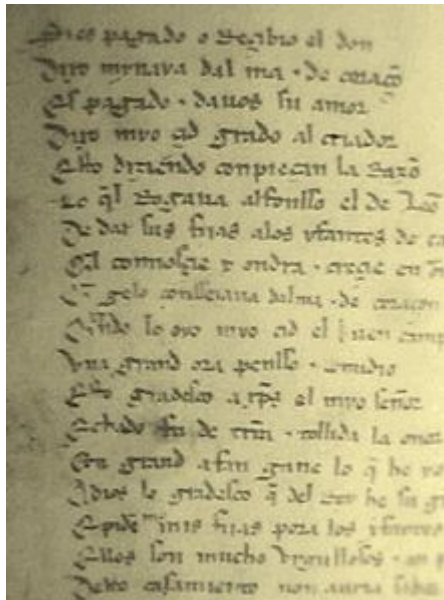 Si es pagado o Recibio el don
Dixo mynaya dalma ⁊ de coraçõ
Es pagado ⁊ dauos su amor
Dixo myo çid grado al criador
Esto diziendo conpieçan la Razõ
Lo q̃l Rogaua alfonsso el de Leõ
De dar sus fijas alos yfantes de ca
Q̃l connosçie y ondra ⁊ creçie en
Q̃ gelo conseiaua dalma ⁊ de coraçon
Quãdo lo oyo myo cid el buen camp
Vna grand ora pensso ⁊ comidio
Esto gradesco a xp̃s el myo señor
Echado fu de tr̃ra ⁊ tollida la onor
Con grand afan gane lo q̃ he yo
A dios lo gradesco q̃ del Rey he su gr
E pidẽ me mis fijas pora los yfantes
Ellos son mucho vrgullosos ⁊ an p
Deste casamiento non auria sabor